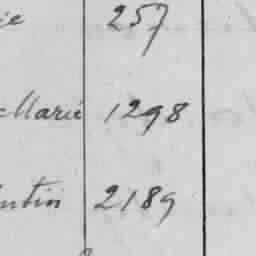 ie 257
Marie 1298
ntin 2189